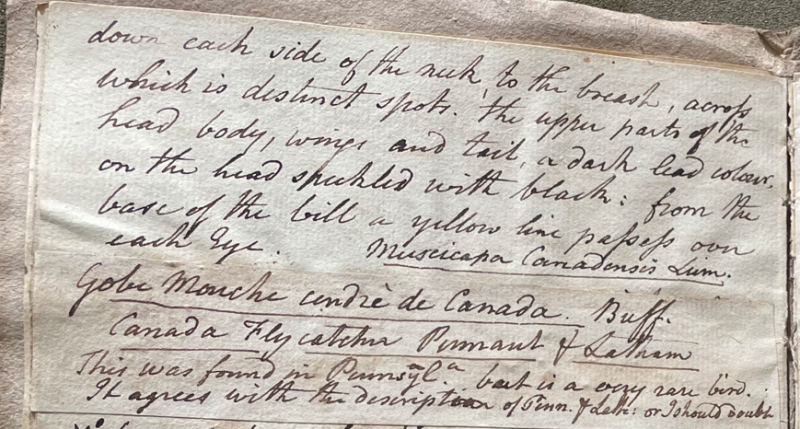 down each side of the neck, to the breast, across
which is distinct spots. the upper parts of the
head body, wings and tail, a dark lead colour.
on the head speckled with black: from the
base of the bill a yellow line passess over
each Eye. Muscicapa Canadensis Linn.
Gobe Mouche cendrè de Canada. Buff.
Canada Flycatcher Pennant & Latham
This was found in Pennsyl.a but is a very rare bird.
It agrees with the description of Penn. & Lath: or I should doubt